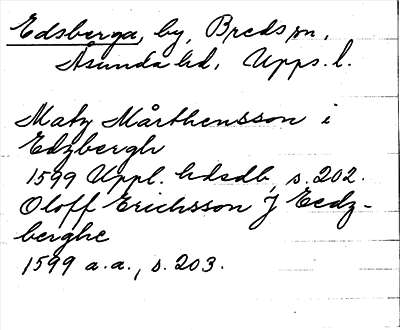 Edsberga, by, Breds sn,
Åsunda hd, Upps. l.
Matz Mårthensson i
Edzbergh
1599 Uppl. hdsdb, s. 202.
Oloff Erichsson J Eedz-
berghe
1599 a.a., s. 203.